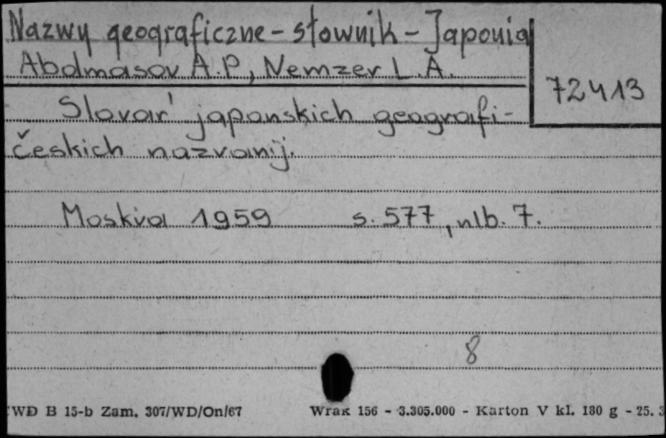 Nazwy geograficzne - słownik - Japonia
Abdmasov A.P., Nemzer L.A.
72413
Slovar' japonskich geografi-
českich nazvanij.
Moskva 1959 s. 577, nlb. 7.
8
WD B 15-b Zam. 307/WD/On/67 Wrak 156 - 3.305.000 - Karton V kl. 180 g - 25. 3